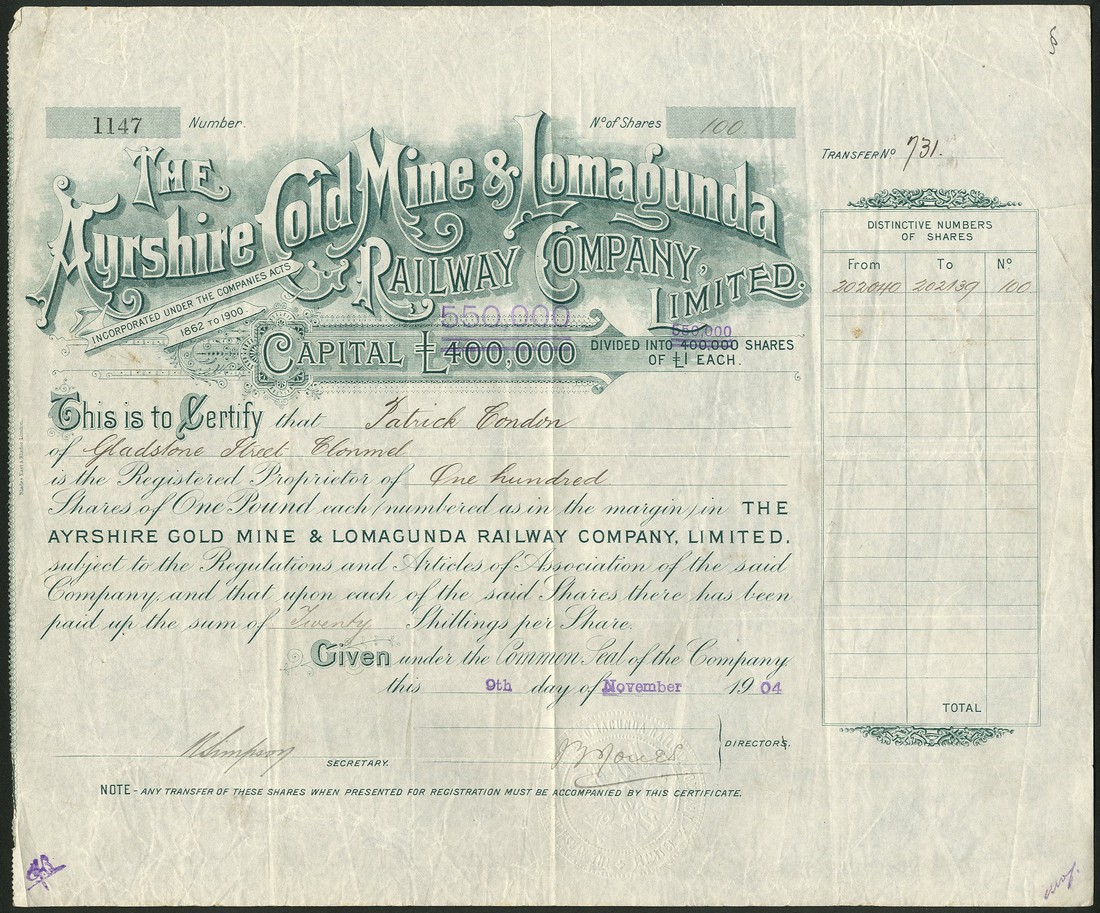 1147 Number. No. of Shares 100
TRANSFER No 731.
THE
Ayrshire Gold Mine & Lomagunda
RAILWAY COMPANY,
LIMITED.
INCORPORATED UNDER THE COMPANIES ACTS
1862 TO 1900
550,000
CAPITAL £400,000
550,000
DIVIDED INTO 400,000 SHARES
OF £1 EACH.
This is to Certify that Patrick Condon
of Gladstone Street Clonmel
is the Registered Proprietor of One hundred
Shares of One Pound each (numbered as in the margin) in THE
AYRSHIRE GOLD MINE & LOMAGUNDA RAILWAY COMPANY, LIMITED.
subject to the Regulations and Articles of Association of the said
Company, and that upon each of the said Shares there has been
paid up the sum of Twenty Shillings per Share.
Given under the Common Seal of the Company
this 9th day of November 1904
DISTINCTIVE NUMBERS
OF SHARES
From To No.
202040 202139 100
TOTAL
SECRETARY.
DIRECTORS.
NOTE - ANY TRANSFER OF THESE SHARES WHEN PRESENTED FOR REGISTRATION MUST BE ACCOMPANIED BY THIS CERTIFICATE.